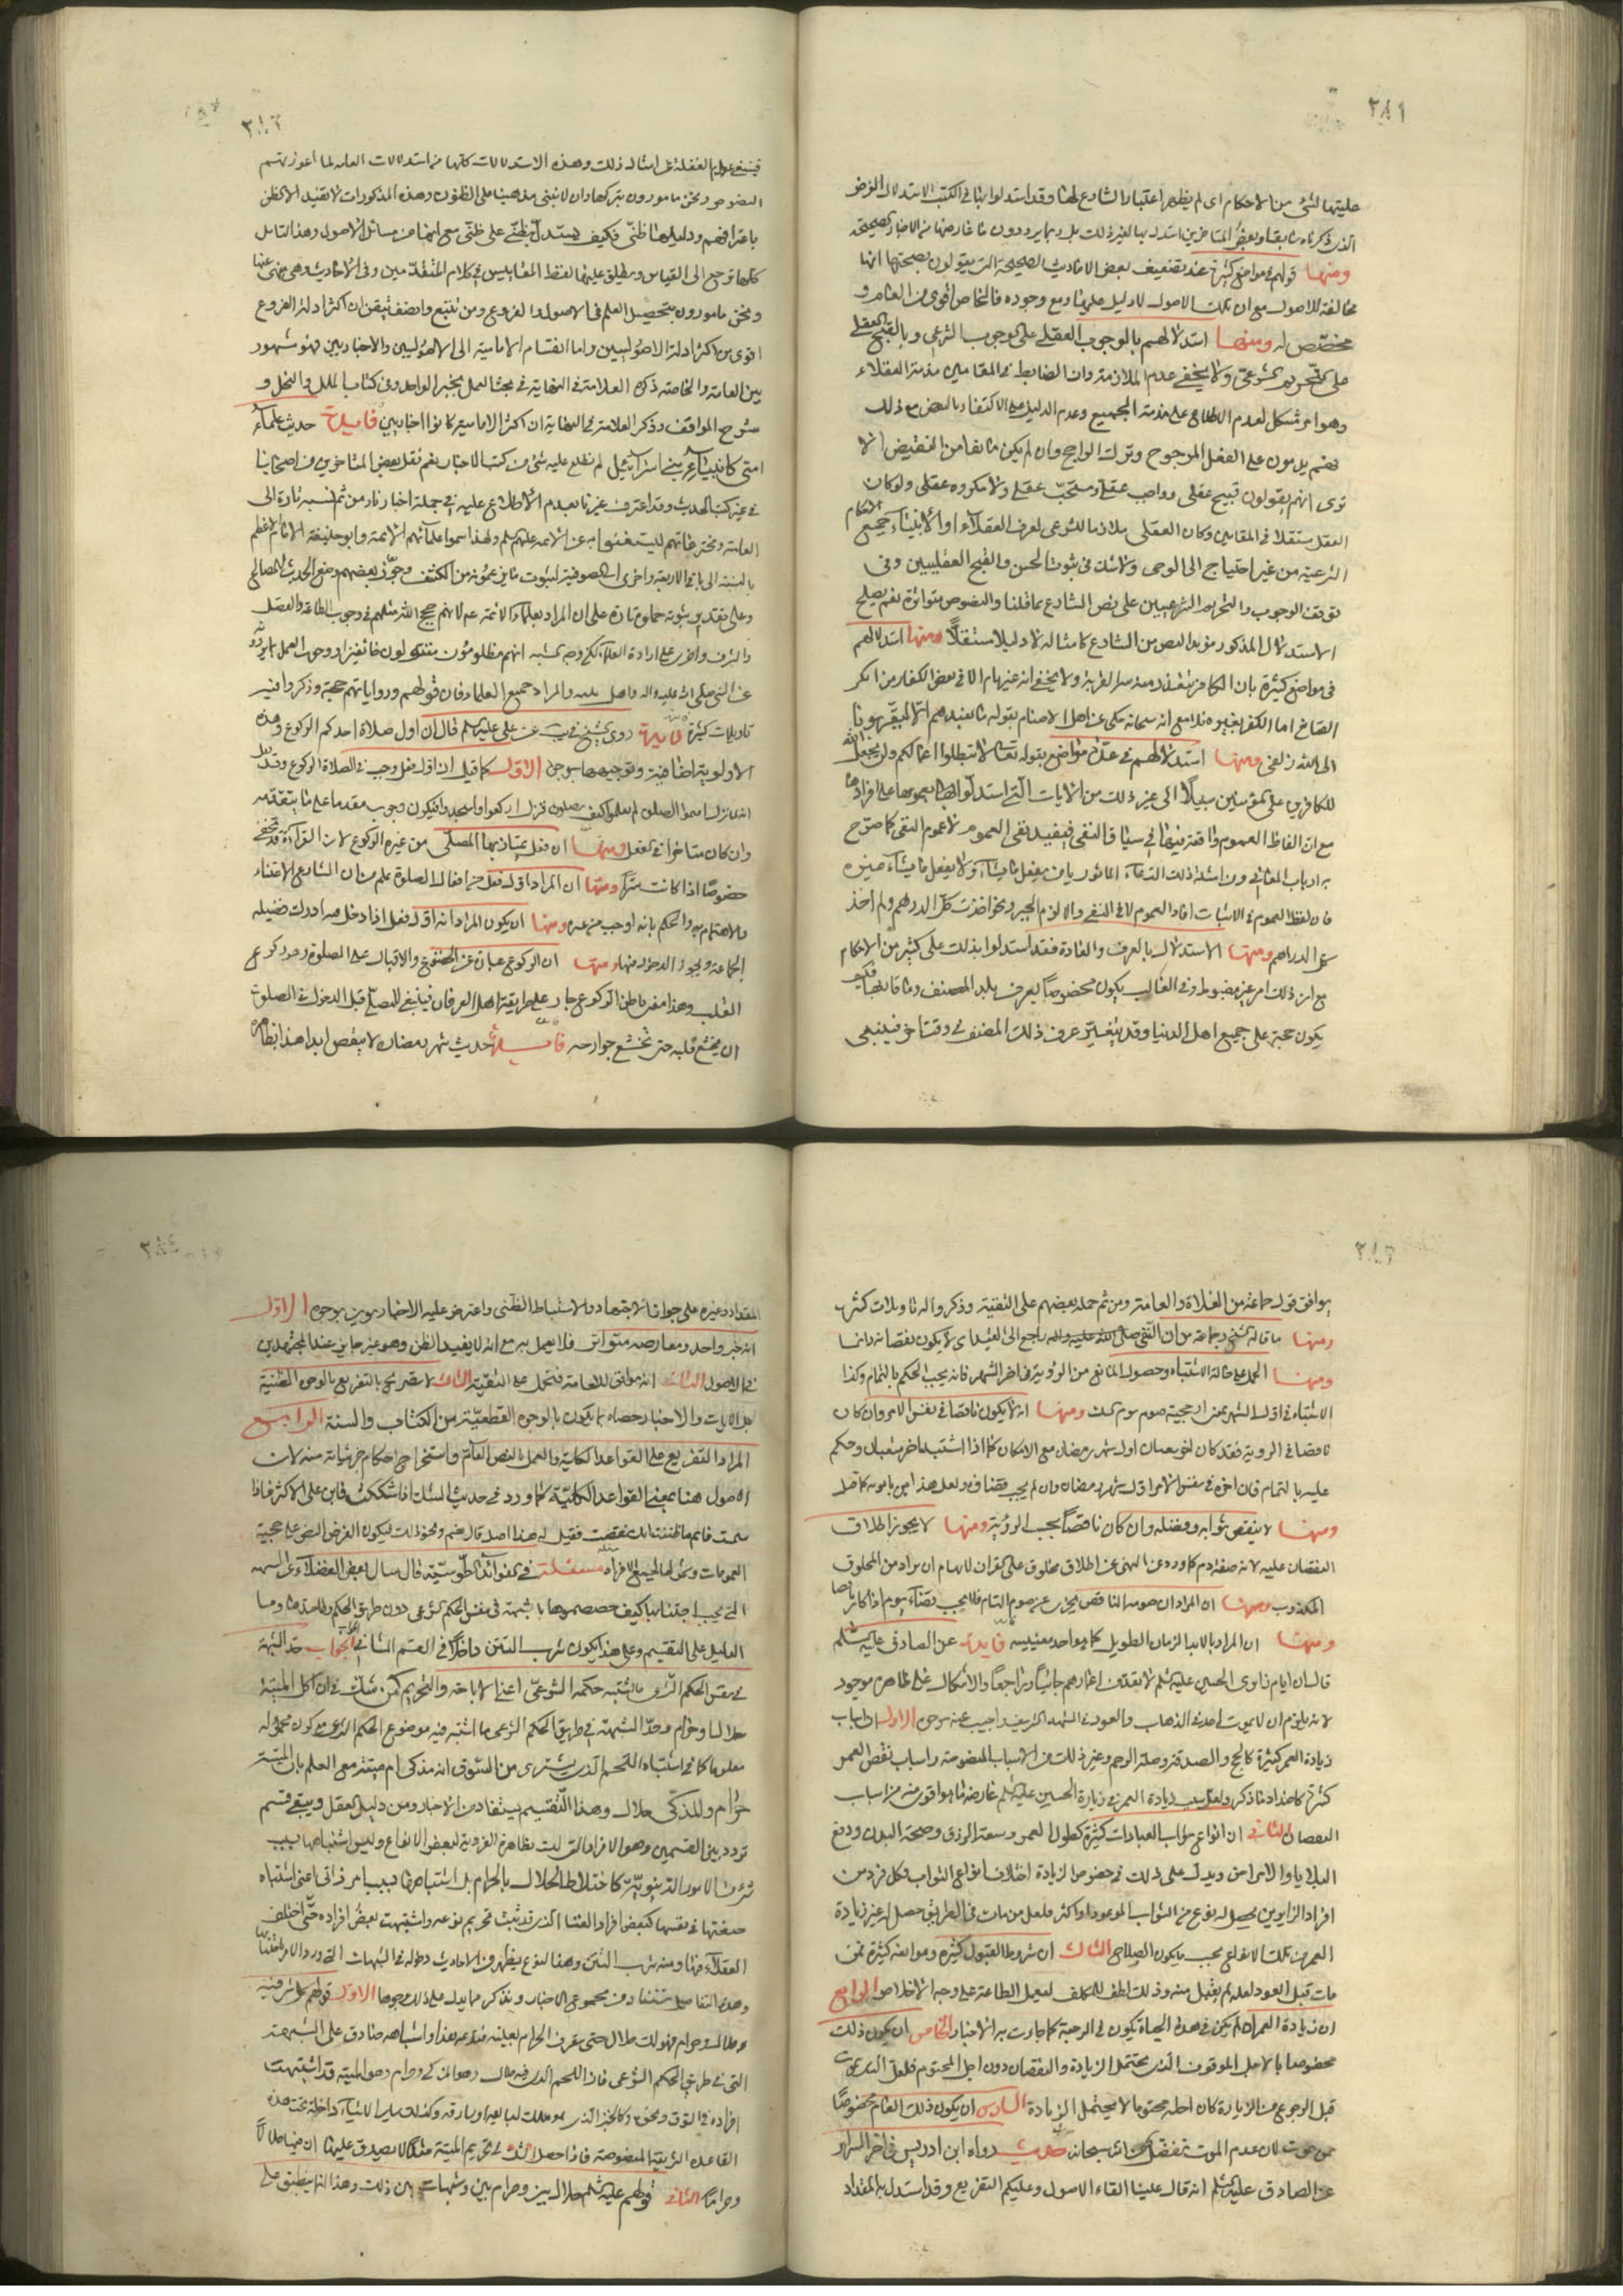 ٢٨١
حليتها لشئ من الاحكام اى لم يظهر اعتبار الشارع لها وقد استدلوا بها فى الكتب الاستدلال الفرض
الذى ذكرناه سابقا وبعض المتاخرين استدل بها لغير ذلك بل ربما يردون ما عارضها من الاخبار الصحيحة
ومنها قولهم فى مواضع كثيرة عند تضعيف بعض الاحاديث الصحيحة التى يقولون بصحتها انها
مخالفة للاصول مع ان تلك الاصول لا دليل عليها ومع وجوده فالخاص اقوى من العام و
مخصص له ومنها استدلالهم بالوجوب العقلى على الوجوب الشرعى وبالقبح العقلى
على التحريم الشرعى ولا يخفى عدم الملازمة وان الضابط فى المقامين مذمة العقلاء
وهو امر مشكل لعدم الاطلاع على مذمة الجميع وعدم الدليل على الاكتفاء بالبعض مع ذلك
فهم يذمون على الفعل المرجوح وترك الراجح وان لم يكن مانعا من النقيض الا
ترى انهم يقولون قبيح عقلى وواجب عقلى ومستحب عقلى ولا مكروه عقلى ولو كان
العقل مستقلا فى المقامين وكان العقلى ملازما للشرعى لعرف العقلاء او الانبياء جميع الاحكام
الشرعية من غير احتياج الى الوحى ولا شك فى ثبوت الحسن والقبح العقليين وفى
توقف الوجوب والتحريم الشرعيين على نص الشارع بما قلنا والنصوص متواترة نعم يصلح
الاستدلال المذكور مؤيدا للنص من الشارع كامثاله لا دليلا مستقلا ومنها استدلالهم
فى مواضع كثيرة بان الكافر يتعذر منه نية القربة ولا يخفى انه غير تام الا فى بعض الكفار من انكر
الصانع اما الكفر بغيره فلا مع انه سبحانه حكى عن اهل الاصنام بقوله ما نعبدهم الا ليقربونا
الى الله زلفى ومنها استدلالهم فى عدة مواضع بقوله تعالى لا تبطلوا اعمالكم ولن يجعل الله
للكافرين على المؤمنين سبيلا الى غير ذلك من الايات التى استدلوا بها بعمومها على افرادها
مع ان الفاظ العموم واقعة فيها فى سياق النفى فيفيد نفى العموم لا عموم النفى كما صرح
به ارباب المعانى ومن امثلة ذلك الدعاء الماثور يا من يفعل ما يشاء ولا يفعل ما يشاء غيره
فان لفظ العموم فى الاثبات افاد العموم لا فى النفى والا لزم الجبر ونحو اخذت كل الدراهم ولم آخذ
كل الدراهم ومنها الاستدلال بالعرف والعادة فقد استدلوا بذلك على كثير من الاحكام
مع ان ذلك امر غير مضبوط وفى الغالب يكون مخصوصا بعرف بلد المصنف وما قاربها فكيف
يكون حجة على جميع اهل الدنيا وقد يتغير عرف ذلك المصنف فى وقت اخر فينبغى
٢٨٢
فينبغى عدم الغفلة عن امثال ذلك وهذه الاستدلالات كلها من استدلالات العامة لما اعوزتهم
النصوص ونحن مامورون بتركها وان لا نبنى مذهبنا على الظنون وهذه المذكورات لا تفيد الا الظن
باعترافهم ودليلها ظنى فكيف يستدل بظنى على ظنى مع انها من مسائل الاصول وهذا التامل
كلها ترجع الى القياس ويطلق عليها لفظ المقاييس فى كلام المتقدمين وفى الاحاديث وهى منهى عنها
ونحن مامورون بتحصيل العلم فى الاصول والفروع ومن تتبع وانصف تيقن ان اكثر ادلة الفروع
اقوى من اكثر ادلة الاصوليين واما انقسام الامامية الى الاصوليين والاخباريين فهو مشهور
بين العامة والخاصة ذكره العلامة فى النهاية فى بحث العمل بخبر الواحد وفى كتاب الملل والنحل و
شرح المواقف وذكر العلامة فى النهاية ان اكثر الامامية كانوا اخباريين فايدة حديث علماء
امتى كانبياء بنى اسرائيل لم نطلع عليه فى شئ من كتب الاخبار نعم نقل بعض المتاخرين من اصحابنا
فى غير كتب الحديث وقد اعترف غيرنا بعدم الاطلاع عليه فى جملة اخبارنا ومن ثم نسبه تارة الى
العامة ومخترعاتهم ليستغنوا به عن الائمة عليهم السلم ولهذا سموا علمائهم الائمة وابو حنيفة الامام الاعظم
بالنسبة الى باقى الاربعة واخرى الى الصوفية لثبوت ما يزعمونه من الكشف وجوز بعضهم وضع الحديث للمصالح
وعلى تقدير ثبوته حملوه تارة على ان المراد بعلماء الائمة ع لانهم حجج الله مثلهم فى وجوب الطاعة والفضل
والشرف واخرى على ارادة العلماء لكن وجه الشبه انهم مظلومون مقتولون خائفين او وجوب العمل بما يروونه
عن النبى صلى الله عليه واله والمراد جميع العلماء فان قولهم ورواياتهم حجة وذكروا فيه
تاويلات كثيرة فايدة روى الشيخ فى يب عن على عليه السلم قال ان اول صلاة احدكم الركوع وهذه
الاولوية اضافية وتوجيهها بوجوه الاول كما قيل ان اول فعل وجب فى الصلاة الركوع وقد نقل
انه لما نزل اقيموا الصلوة لم يعلموا كيف يصلون فنزل اركعوا واسجدوا فيكون وجوبه مقدما على ما يتقدمه
وان كان متاخرا فى الفعل ومنها ان فعل يمتاز بها المصلى من غيره الركوع لان القراءة قد تخفى
خصوصا اذا كانت سرا ومنها ان المراد اول فعل من افعال الصلوة علم من الشارع الاعتناء
والاهتمام به والحكم بانه اوجب من غيره ومنها ان يكون المراد انه اول فعل اذا دخل معه ادرك فضيلة
الجماعة ويجوز الدخول فيها ومنها ان الركوع عبارة عن الخضوع والاقبال على الصلوة وهو ركوع
القلب وهذا معنى باطن الركوع جار على طريقة اهل العرفان فينبغى للمصلى قبل الدخول فى الصلوة
ان يخشع قلبه حتى تخشع جوارحه فايدة حديث شهر رمضان لا ينقص ابدا هذا بظاهره
٢٨٣
يوافق قول جماعة من الغلاة والعامة ومن ثم حمله بعضهم على التقية وذكروا له تاويلات كثيرة
ومنها ما قاله الشيخ وجماعة من ان النفى راجع الى القيد اى لا يكون نقصانه دائما
ومنها الحمل على حالة الاشتباه وحصول المانع من الرؤية فى اخر الشهر فانه يجب الحكم بالتمام وكذا
الاشتباه فى اول الشهر بمعنى ارجحية صوم يوم الشك ومنها انه لا يكون ناقصا فى نفس الامر وان كان
ناقصا فى الرؤية فقد كان اخر شعبان اول شهر رمضان مع الامكان كما اذا اشتبه اخر شعبان وحكم
عليه بالتمام فان اخره فى نفس الامر اول شهر رمضان وان لم يجب قضاؤه
ومنها لا ينقص ثوابه وفضله وان كان ناقصا بحسب الرؤية ومنها لا يجوز اطلاق
النقصان عليه لانه صفة ذم كما ورد عن النهى عن اطلاق مخلوق على القران لايهام ان يراد من المخلوق
المكذوب ومنها ان المراد ان صومه الناقص يجزى عن صوم التام فلا يجب قضاء يوم اذا كان ناقصا
ومنها ان المراد بالابد الزمان الطويل كما هو احد معنييه فايدة عن الصادق عليه السلم
قال ان ايام زائرى الحسين عليه السلم لا تعد من اعمارهم جائيا وراجعا والاشكال على ظاهره موجود
لانه يلزم ان لا يموت احد فى الذهاب والعود فى واجيب عنه بوجوه الاول ان اسباب
زيادة العمر كثيرة كالحج والصدقة وصلة الرحم وغير ذلك من الاسباب المنصوصة واسباب نقص العمر
كثيرة كاضداد ما ذكر ولعل سبب زيادة العمر فى زيارة الحسين عليه السلم عارضه ما هو اقوى منه من اسباب
النقصان الثانى ان انواع ثواب العبادات كثيرة كطول العمر وسعة الرزق وصحة البدن ودفع
البلايا والامراض ويدل على ذلك فى خصوص الزيارة اختلاف انواع الثواب فكل فرد من
افراد الزايرين يحصل له نوع من الثواب الموعود او اكثر فلعل من مات فى الطريق حصل له غير زيادة
العمر من تلك الانواع بحسب ما يكون الصلاح الثالث ان شروط القبول كثيرة وموانعه كثيرة فمن
مات قبل العود لعله لم يقبل منه وذلك لطف للمكلف ليعمل الطاعة على وجه الاخلاص الرابع
ان زيادة العمر ان لم يكن فى هذه الحياة يكون فى الرجعة كما جاءت به الاخبار الخامس ان يكون ذلك
مخصوصا بالاجل الموقوف الذى يحتمل الزيادة والنقصان دون اجل المحتوم فلعل الذى يموت
قبل الرجوع من الزيارة كان اجله محتوما لا يحتمل الزيادة السادس ان يكون ذلك العام مخصوصا
بمن يموت لان عدم الموت تفضل من الله سبحانه حديث رواه ابن ادريس فى اخر السرائر
عن الصادق عليه السلم انه قال علينا القاء الاصول وعليكم التفريع وقد استدل به المقداد
٢٨٤
المقداد وغيره على جواز الاجتهاد والاستنباط الظنى واعترض عليه الاخباريون بوجوه الاول
انه خبر واحد ومعارضه متواتر فلا يعمل به مع انه لا يفيد الظن وهو غير جايز عند المجتهدين
فى الاصول الثانى انه موافق للعامة فتحمل على التقية الثالث لا تصريح بالتفريع بالوجوه الظنية
بل الايات والاخبار خصاه بما يكون بالوجوه القطعية من الكتاب والسنة الرابع
المراد التفريع على القواعد الكلية والعمل بالنص العام واستخراج احكام جزئياته منه لان
الاصول هنا بمعنى القواعد الكلية كما ورد فى حديث الشك اذا شككت فابن على الاكثر فاذا
سلمت فاتم ما ظننت انك نقصت فقيل له هذا اصل قال نعم ونحو ذلك فيكون الغرض النص على حجية
العمومات وشمولها لجميع الافراد مسئلة فى الفوائد الطوسية قال سال بعض الفضلاء عن الشبهة
التى يجب اجتنابها كيف خصصتموها بالشبهة فى نفس الحكم الشرعى دون طريق الحكم وما حدهما وما
الدليل على التقسيم وعلى هذا يكون شرب التتن داخلا فى القسم الثانى الجواب حد الشبهة
فى نفس الحكم الشرعى ما اشتبه حكمه الشرعى اعنى الاباحة والتحريم كمن شك فى ان اكل الميتة
حلال او حرام وحد الشبهة فى طريق الحكم الشرعى ما اشتبه فيه موضوع الحكم الشرعى مع كون محموله
معلوما كما فى اشتباه اللحم الذى يشترى من السوق انه مذكى ام ميتة مع العلم بان الميتة
حرام والمذكى حلال وهذا التقسيم يستفاد من الاخبار ومن دليل العقل ويبقى قسم
تردد بين القسمين وهو الافراد التى ليست بظاهرة الفردية لبعض الانواع وليس اشتباهها بسبب
شئ من الامور الدنيوية كاختلاط الحلال بالحرام بل اشتباهها بسبب امر ذاتى اعنى اشتباه
صفتها فى نفسها كبعض افراد الغنا الذى قد ثبت تحريم نوعه واشتبهت بعض افراده حتى اختلف
العقلاء فيها ومنه شرب التتن وهذا النوع يظهر من الاحاديث دخوله فى الشبهات التى ورد الامر باجتنابها
وهذه التفاصيل تستفاد من مجموع الاخبار ونذكر مما يدل على ذلك وجوها الاول قولهم كل شئ فيه
حلال وحرام فهو لك حلال حتى تعرف الحرام بعينه فتدعه فهذا واشباهه صادق على الشبهة
التى فى طريق الحكم الشرعى فان اللحم الذى فيه حلال وهو المذكى وحرام وهو الميتة قد اشتبهت
افراده فى السوق ونحوه وكالخبز الذى هو ملك لبائعه او سارقه وكذلك ساير الاشياء داخلة تحت هذه
القاعدة الشريفة المنصوصة فاذا حصل الشك فى تحريم الميتة مثلا لا يصدق عليها ان فيها حلالا
وحراما الثانى قولهم عليهم السلم حلال بين وحرام بين وشبهات بين ذلك وهذا انما ينطبق على